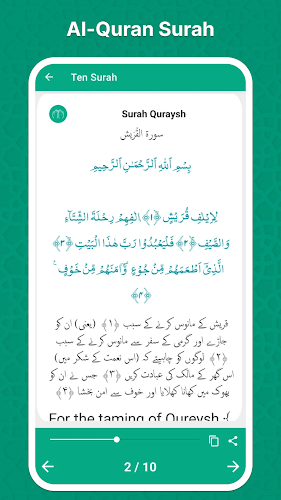 Al-Quran Surah
Ten Surah
Surah Quraysh
سورة القُرَيش
بِسْمِ اللهِ الرَّحْمٰنِ الرَّحِيْمِ
لِاِيْلٰفِ قُرَيْشٍ ﴿۱﴾ اٖلٰفِهِمْ رِحْلَةَ الشِّتَآءِ
وَالصَّيْفِ ﴿۲﴾ فَلْيَعْبُدُوْا رَبَّ هٰذَا الْبَيْتِ ﴿۳﴾
الَّذِيْٓ اَطْعَمَهُمْ مِّنْ جُوْعٍ وَّاٰمَنَهُمْ مِّنْ خَوْفٍ
﴿۴﴾
قریش کے مانوس کرنے کے سبب ﴿۱﴾ (یعنی) ان کو
جاڑے اور گرمی کے سفر سے مانوس کرنے کے سبب
﴿۲﴾ لوگوں کو چاہیئے کہ (اس نعمت کے شکر میں)
اس گھر کے مالک کی عبادت کریں ﴿۳﴾ جس نے ان کو
بھوک میں کھانا کھلایا اور خوف سے امن بخشا ﴿۴﴾
For the taming of Qureysh
2 / 10